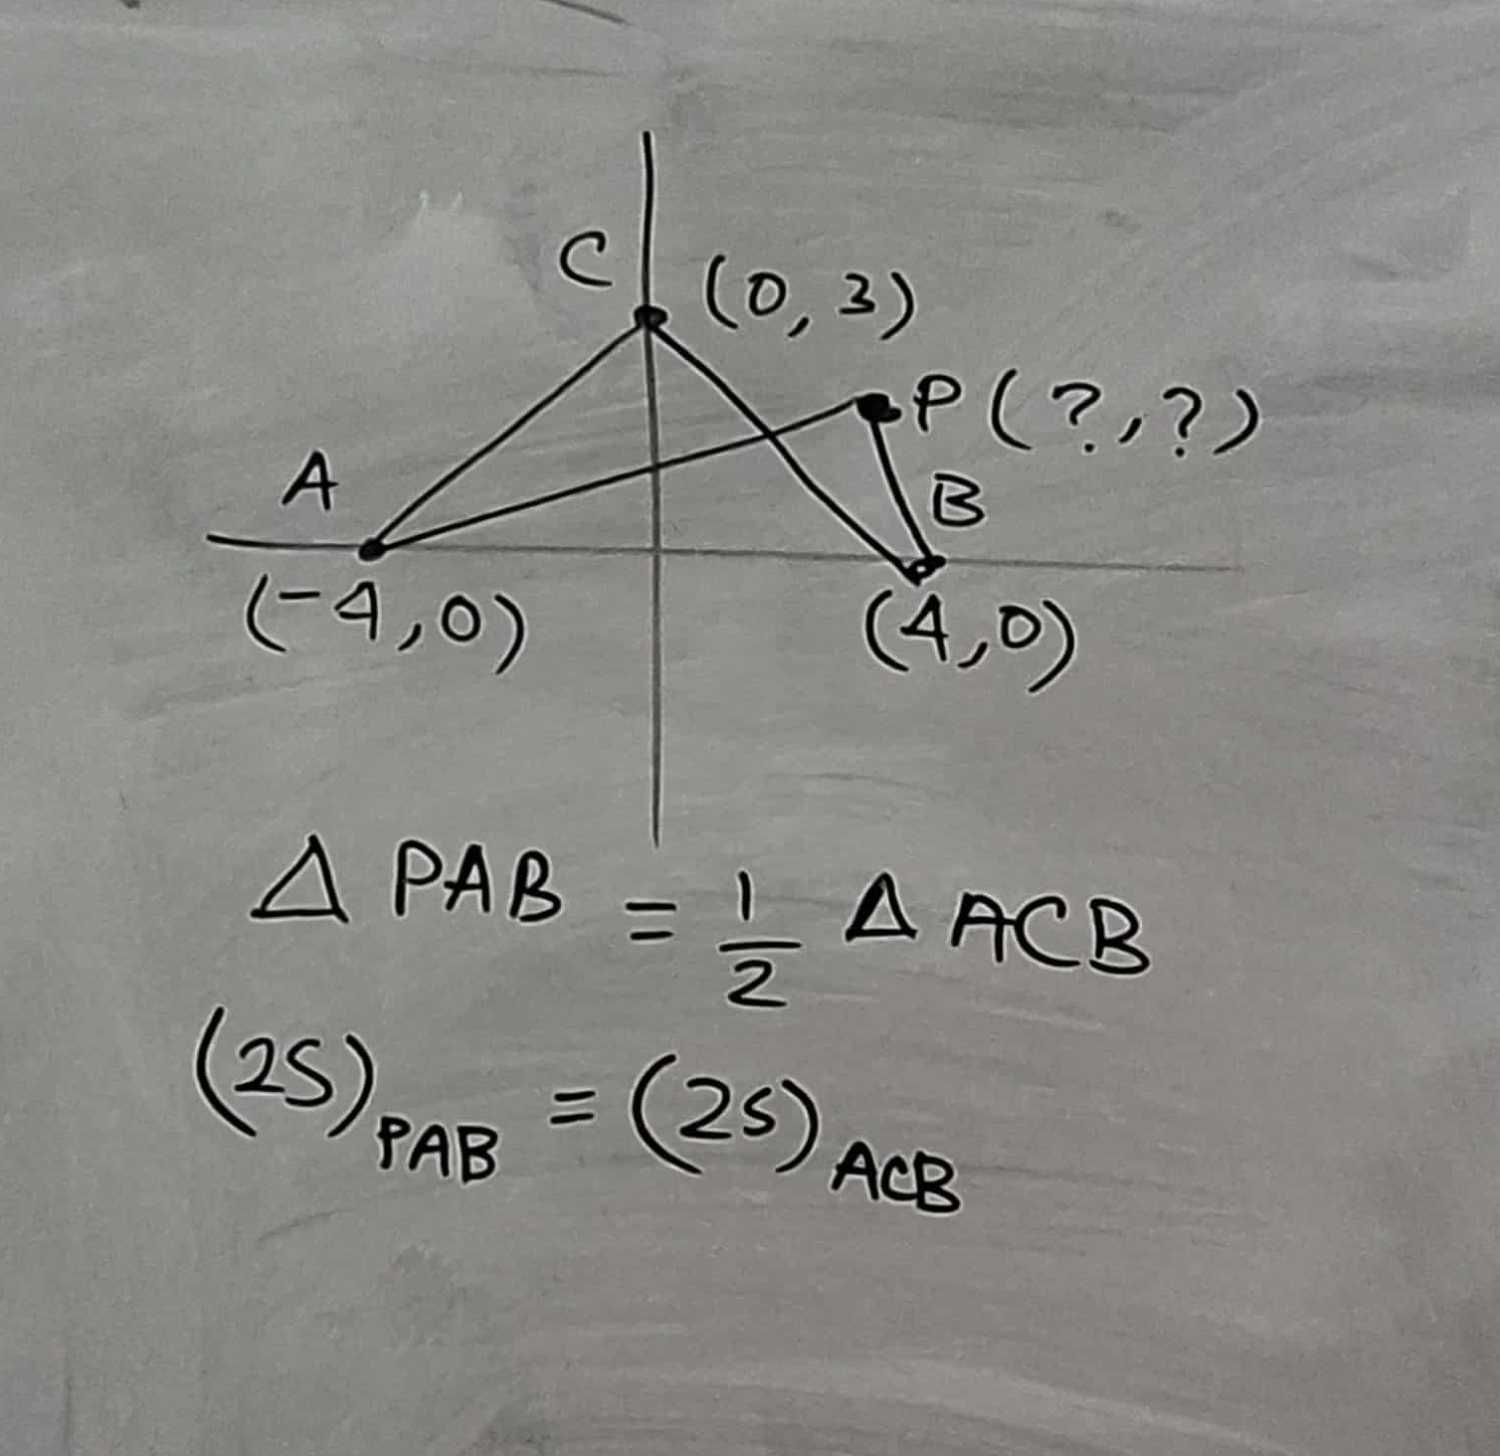 C (0,3)
P(?,?)
A
B
(-4,0)
(4,0)
Δ PAB = 1/2 Δ ACB
(2S)PAB = (2S)ACB